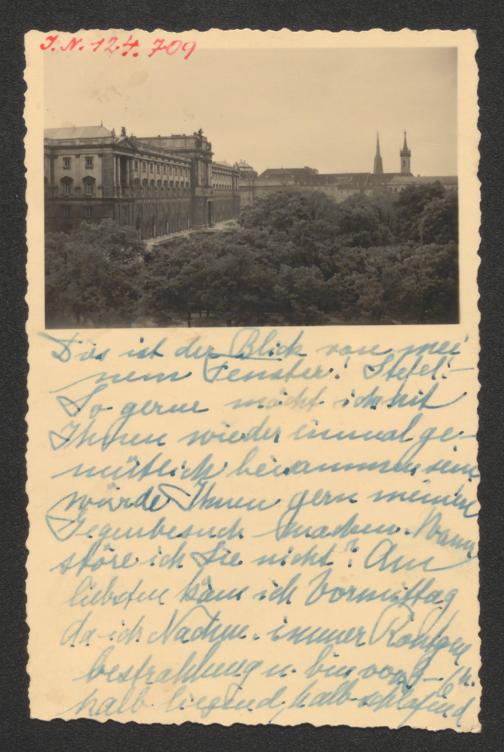 J.N. 124.709
Das ist der Blick von mei
nem Fenster! Stefel!
So gerne möcht ich mit
Ihnen wieder einmal ge-
mütlich beisammen sein
würde Ihnen gern meinen
Gegenbesuch machen. Wann
störe ich Sie nicht? Am
liebsten käm ich Vormittag
da ich Nachm. immer Röntgen
bestrahlung u. bin von
halb liegend, halb schlafend